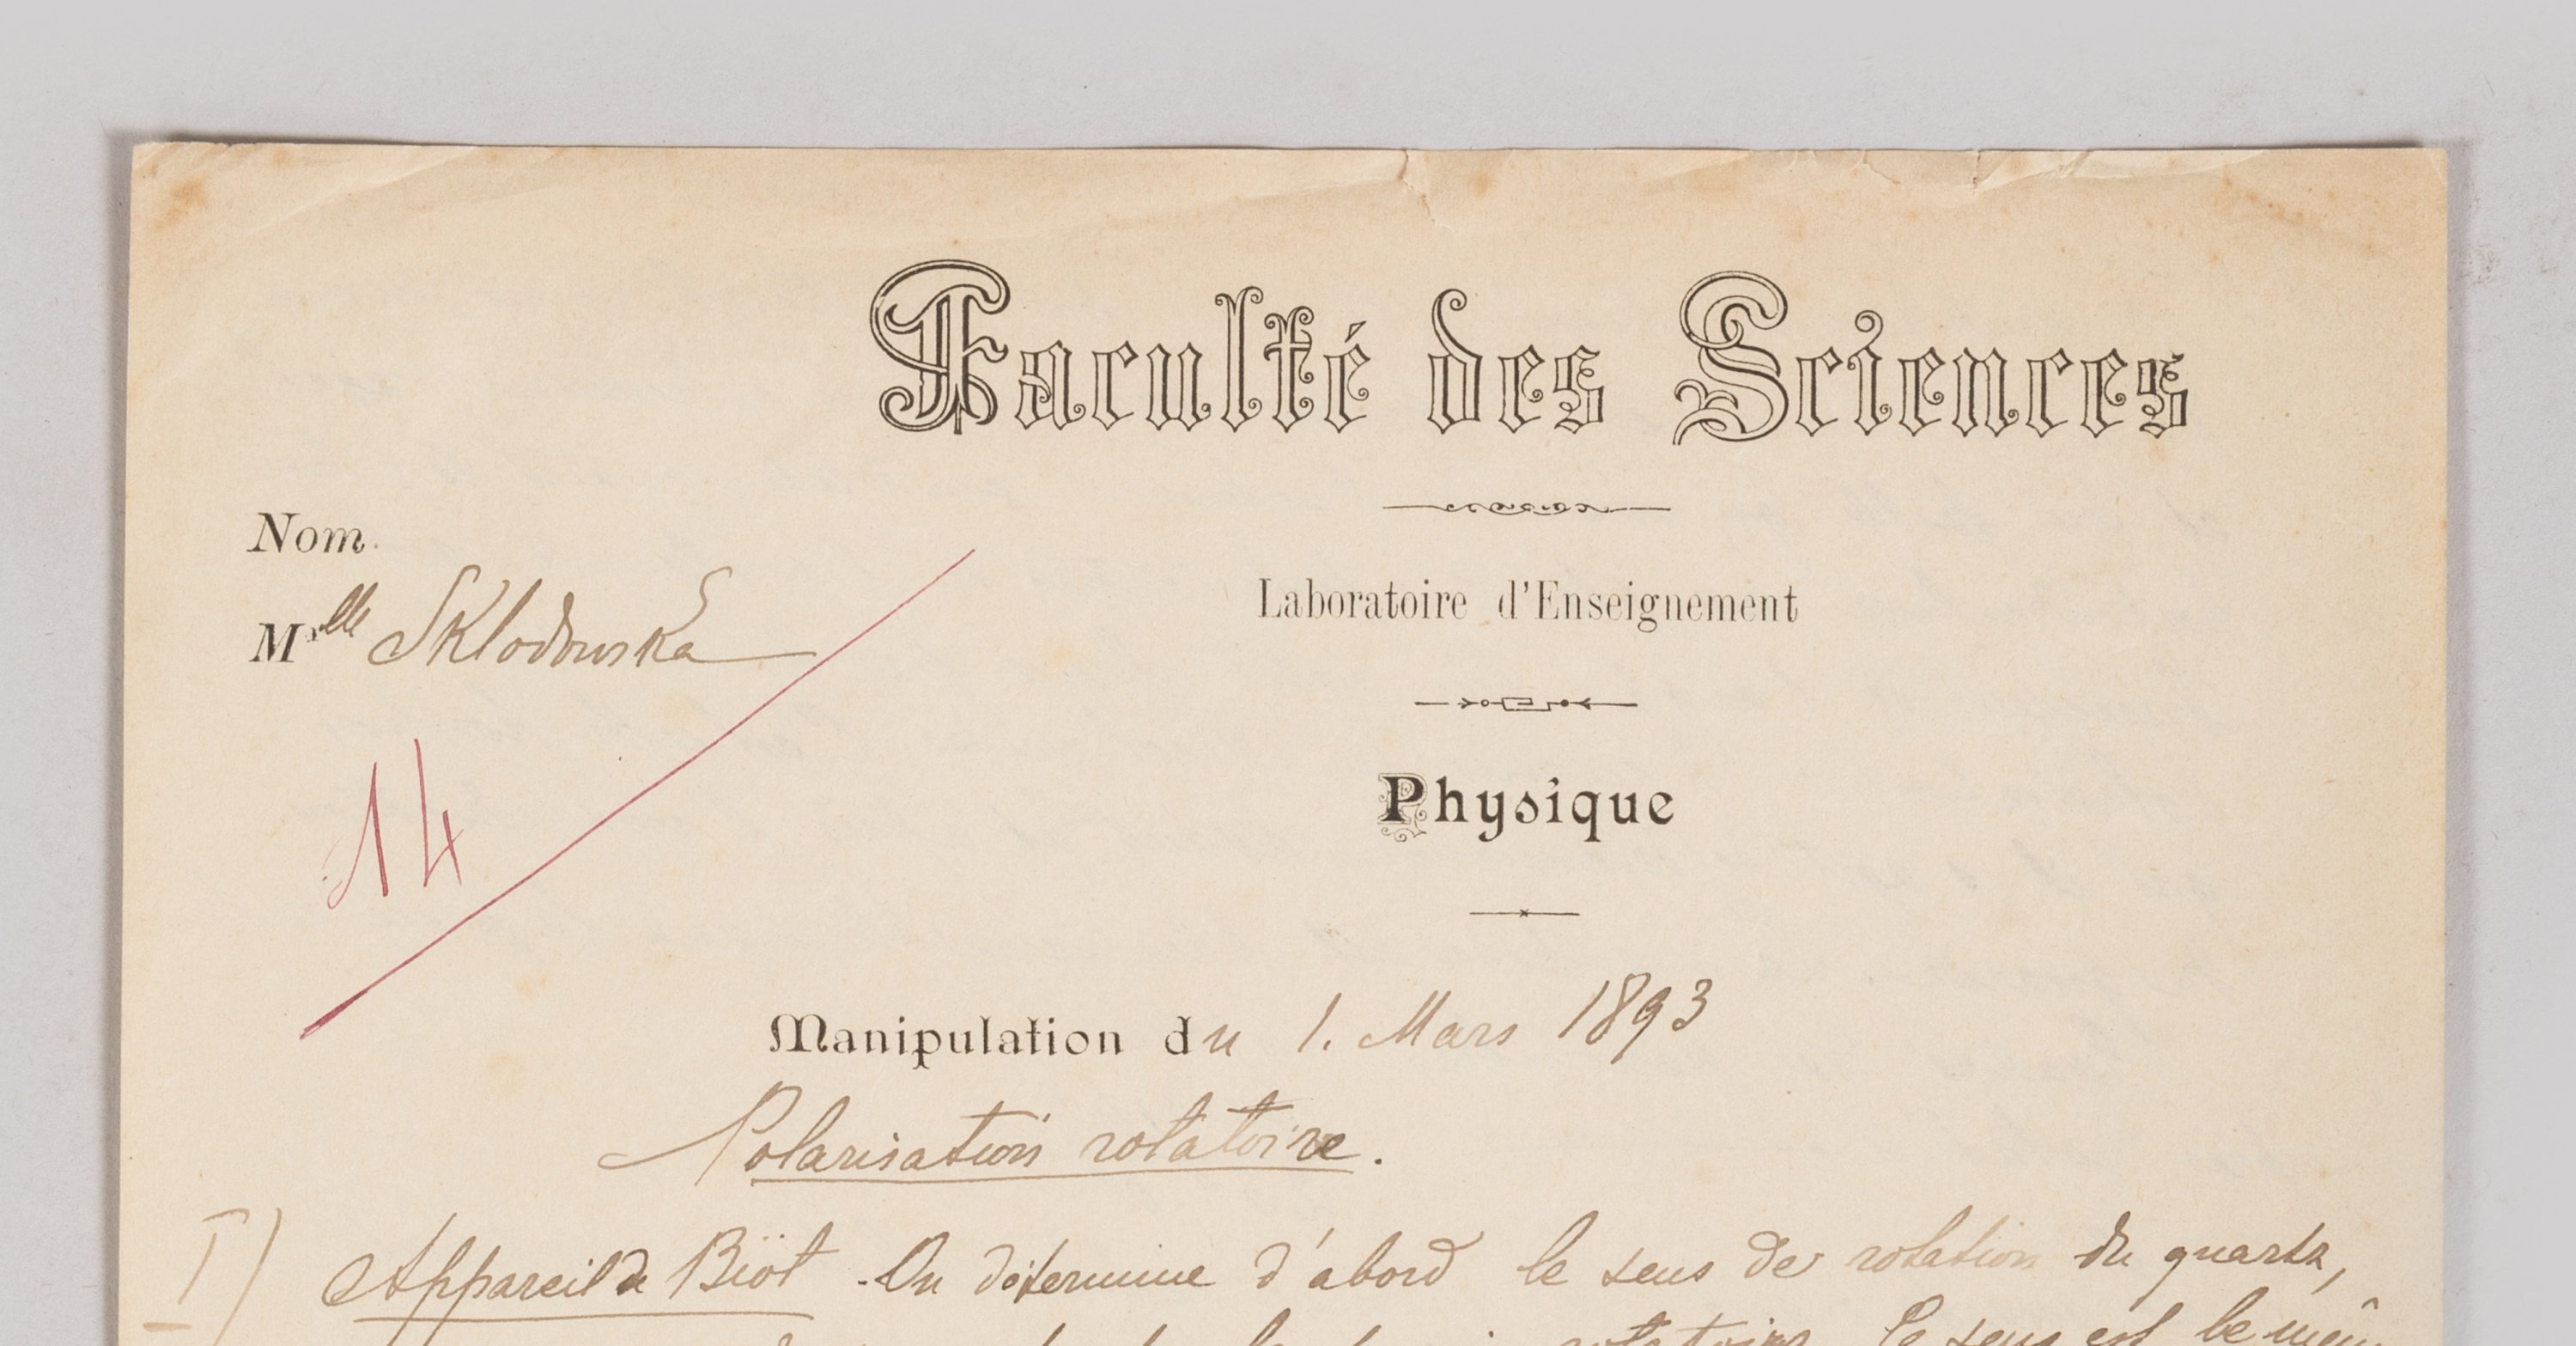 Faculté des Sciences
Nom
Laboratoire d'Enseignement
Mlle Sklodowska
14
Physique
Manipulation du 1. Mars 1893
Polarisation rotatoire.
I) Appareil de Biot. On détermine d'abord le sens de rotation du quartz,
rotatoire. Le sens est le mêm